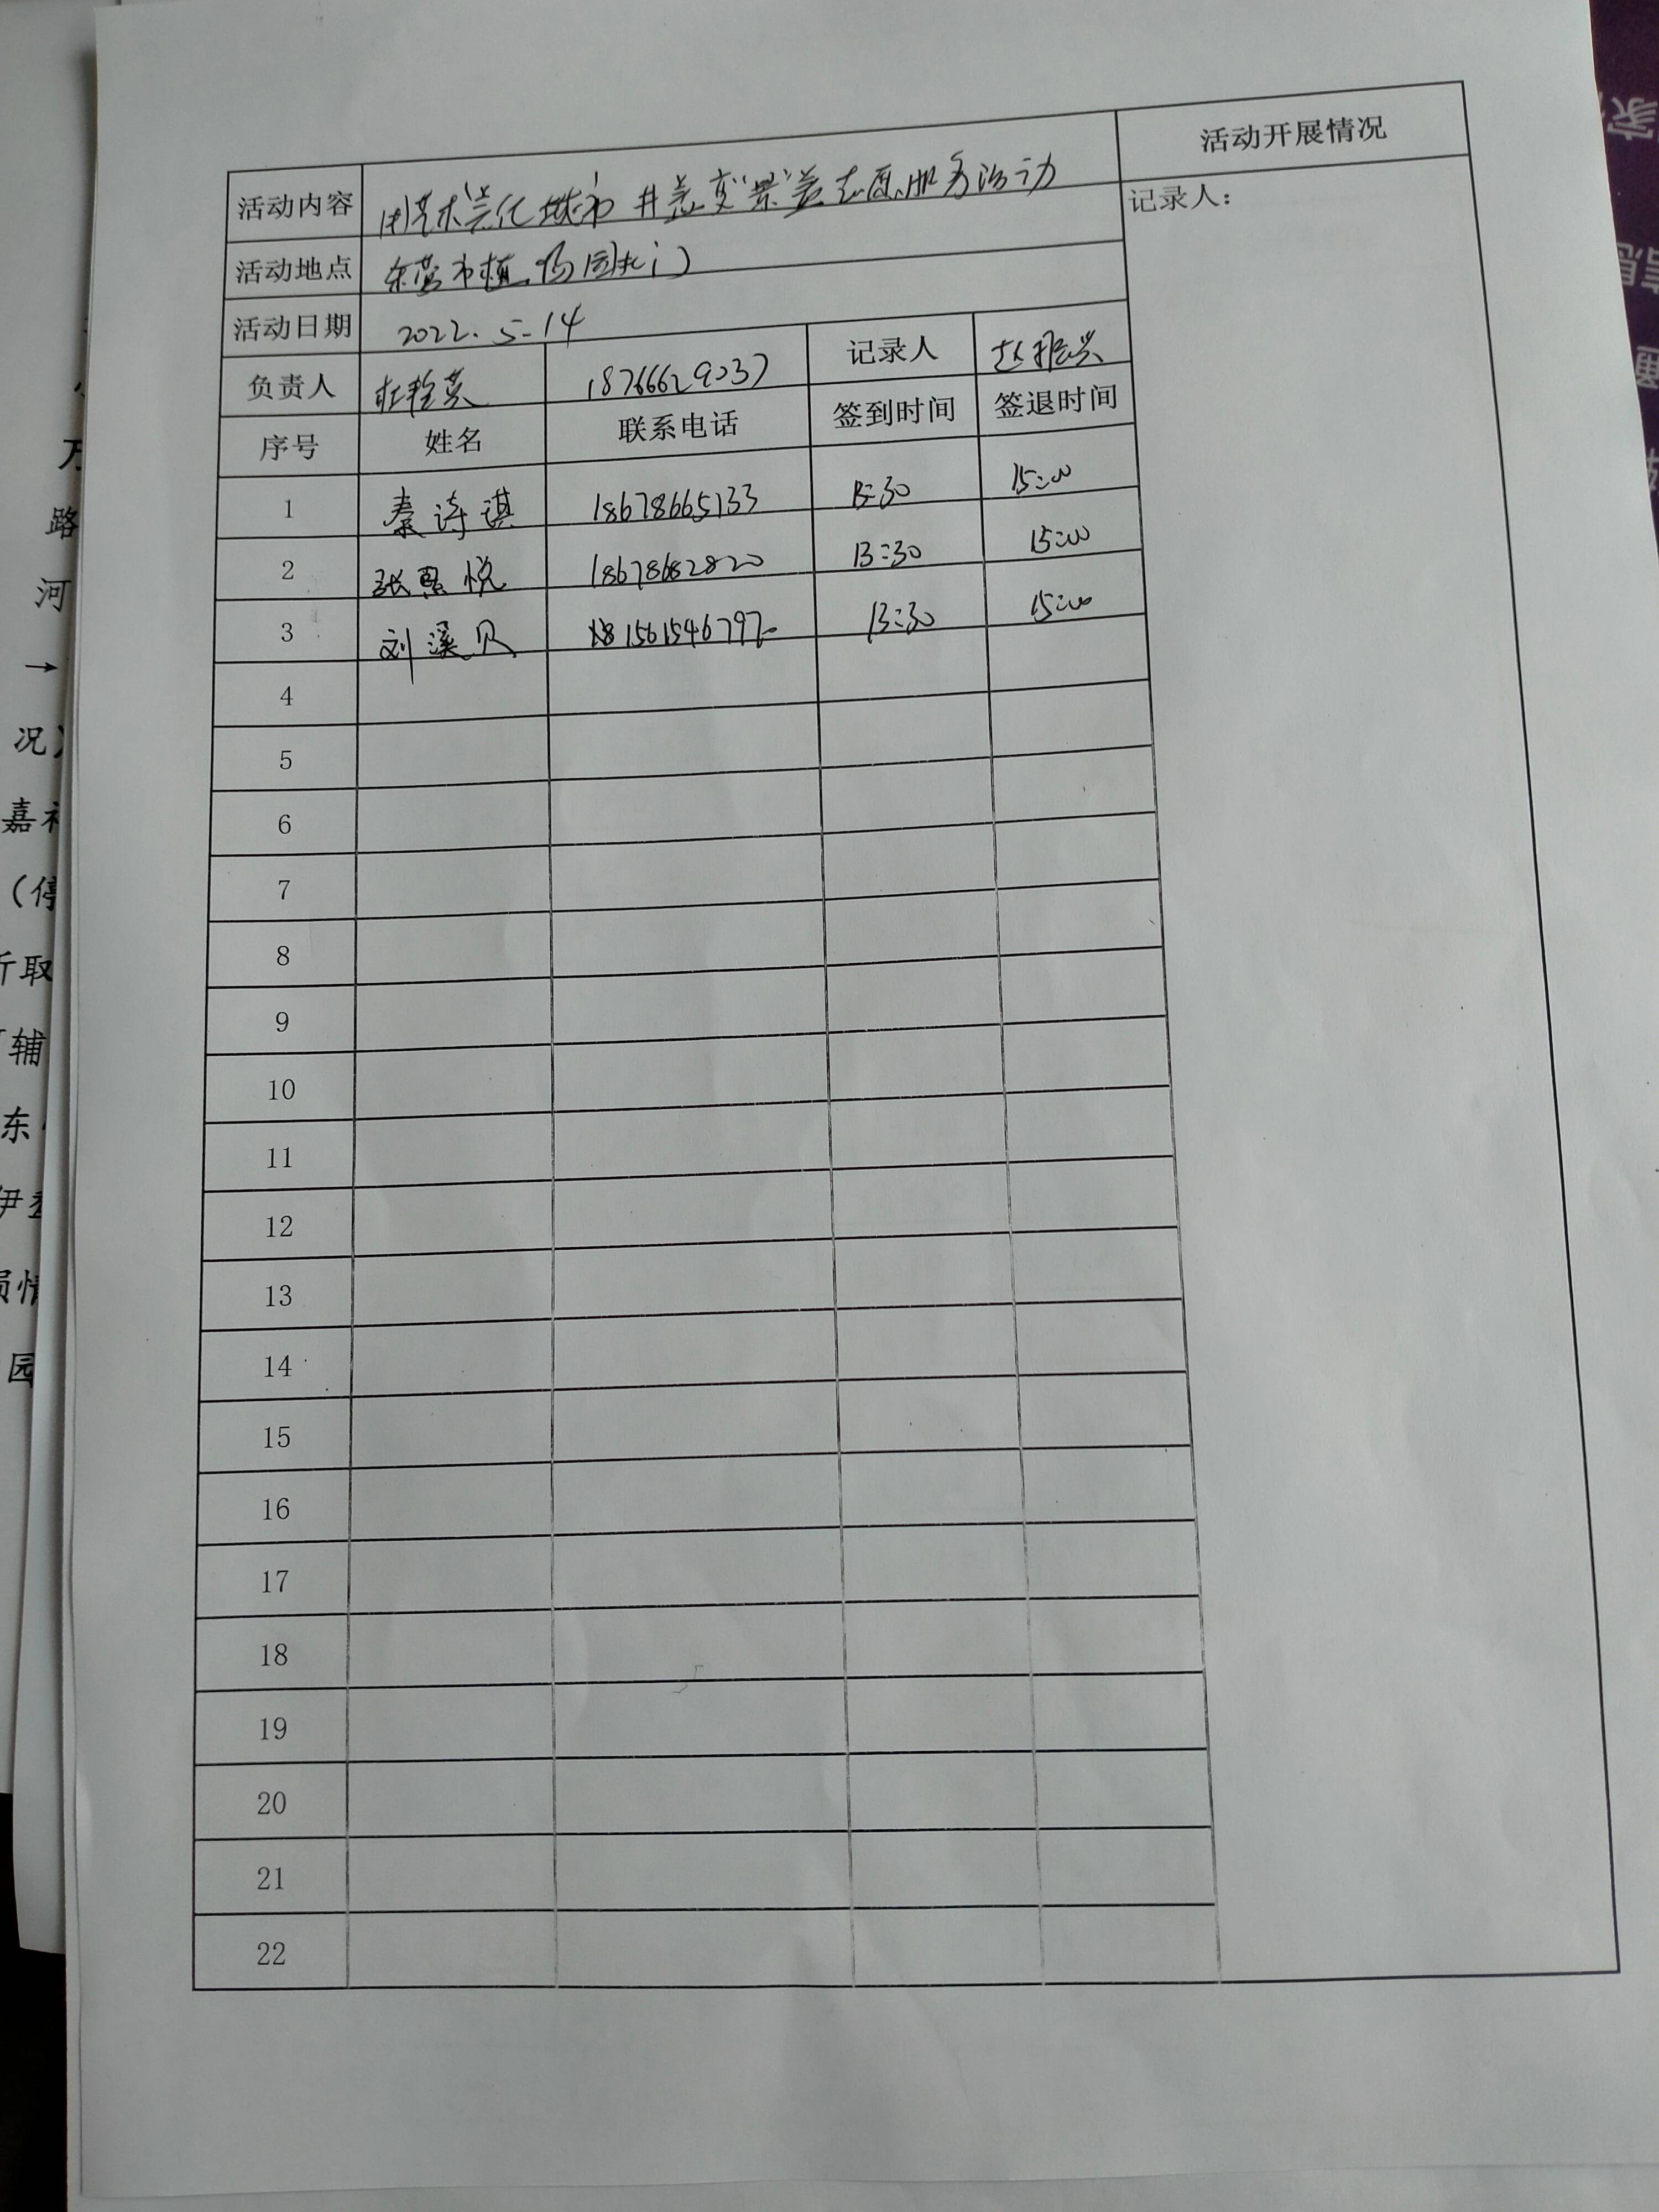 活动开展情况
活动内容 用艺术美化城市 井盖变"景"盖志愿服务活动
记录人：
活动地点 东营市植物园北门
活动日期 2022.5.14
负责人 18766629037 记录人 赵振兴
序号 姓名 联系电话 签到时间 签退时间
1 秦诗琪 18678665133 13:30 15:00
2 张 悦 18678682820 13:30 15:00
3 刘溪贝 13:30 15:00
4
5
6
7
8
9
10
11
12
13
14
15
16
17
18
19
20
21
22
路
河
→
况
嘉
（停
取
辅
东
伊
情
园
家
信息